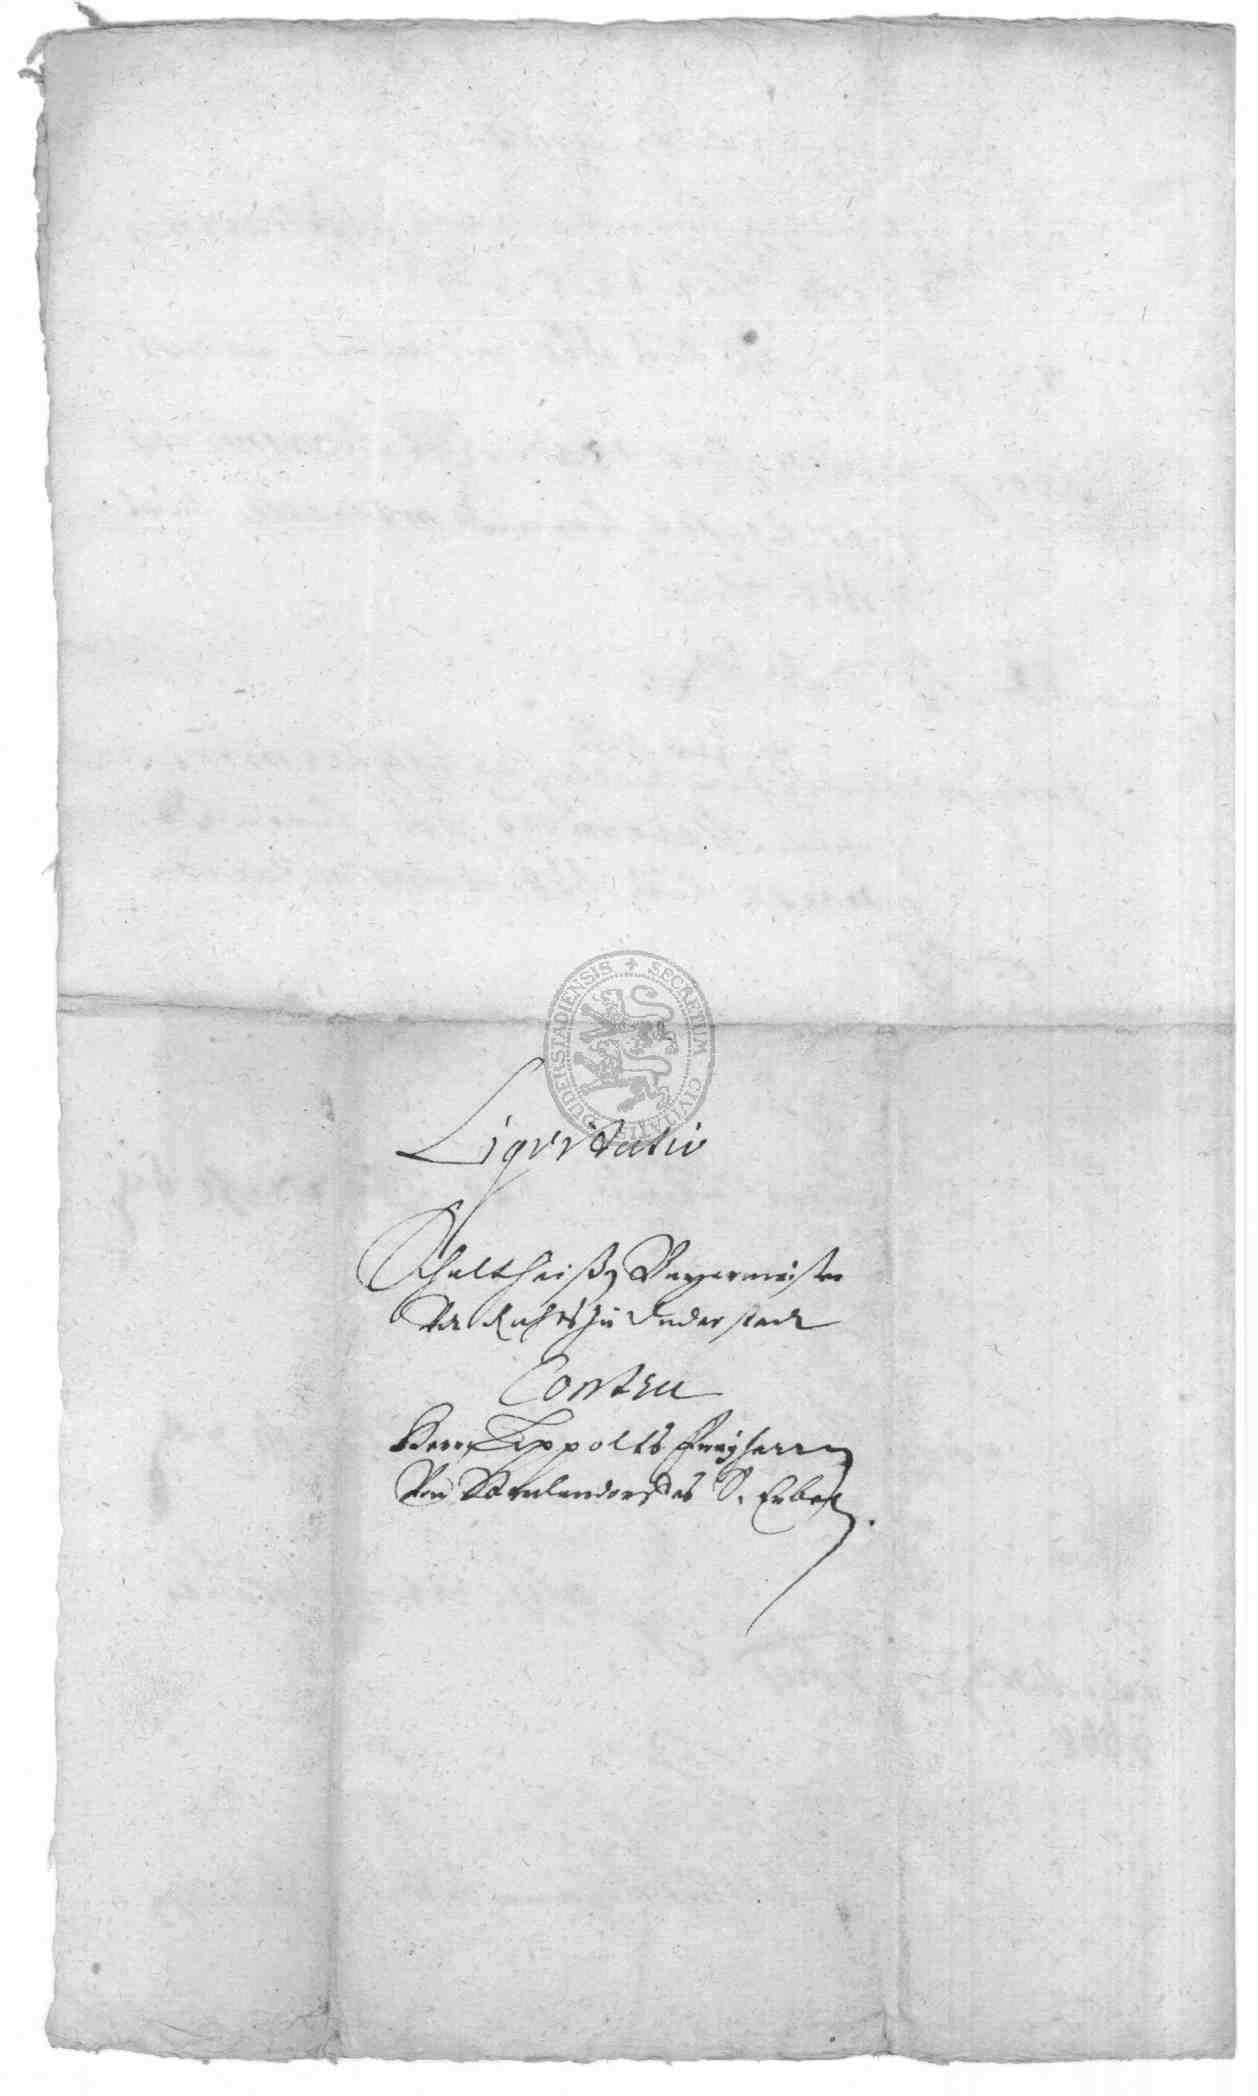 SECRETUM CIVITATIS DUDERSTADIENSIS
Liquidatio
Schultheiß, Burgermeister
Vnd Rahts zu Duderstadt
Contra
Herrn Lippolts Freyherrn
Von S. Erben.